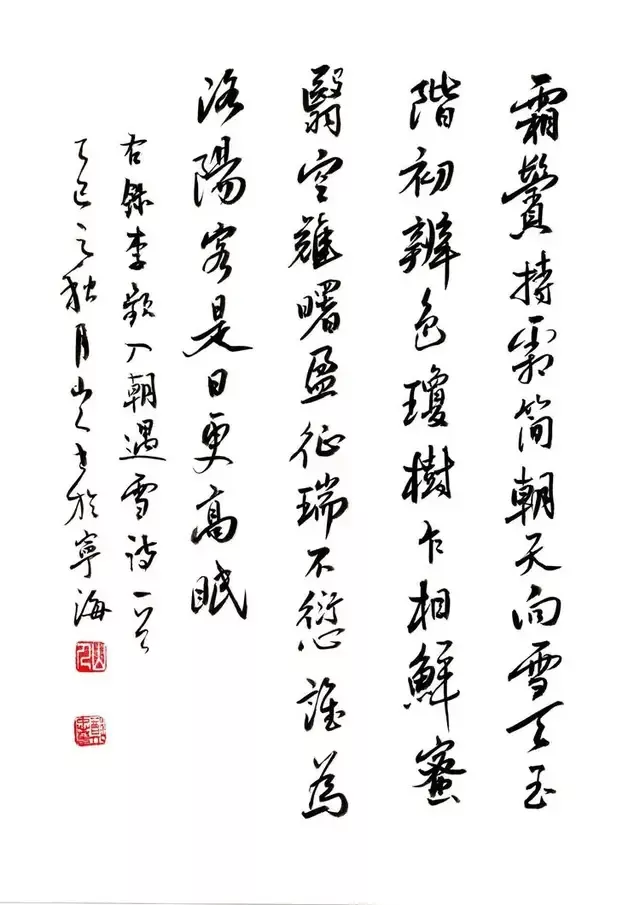 霜鬢持霜簡朝天向雪天玉
階初辨色瓊樹乍相鮮蜜
翳空難曙盈征瑞不愆誰為
洛陽客是日更高眠
右錄李入朝遇雪詩一首
巳之秋月山人書於寧海